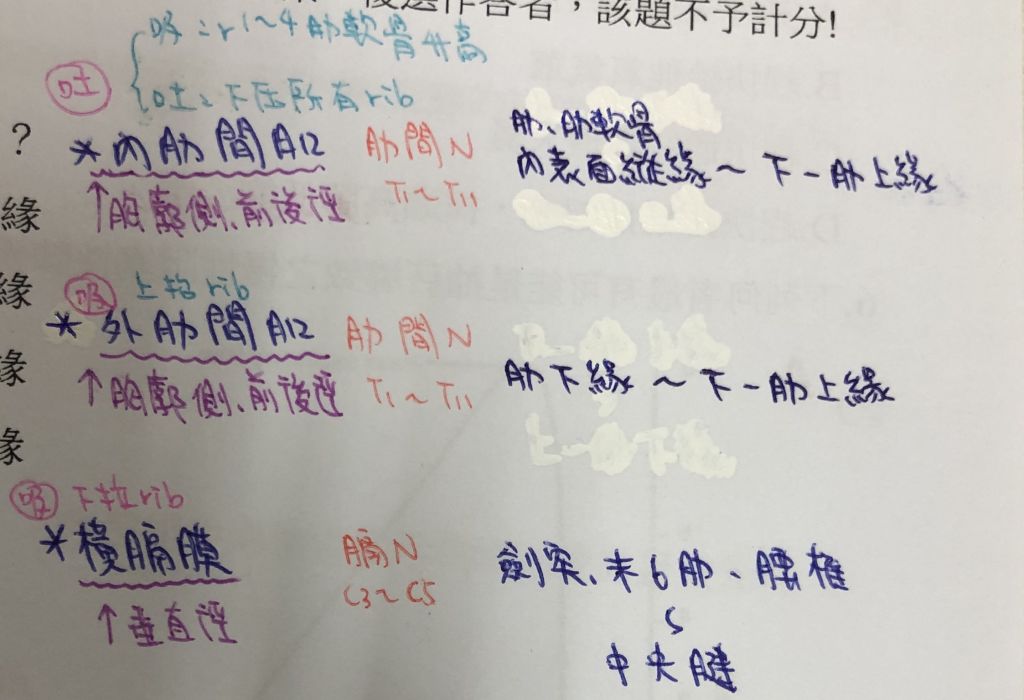 後選作答者，該題不予計分!
吸：r1~4肋軟骨升高
吐：下压所有rib
吐
?
*內肋間肌
肋間N
肋、肋軟骨
內表面縱緣～下一肋上緣
↑胸廓側、前後徑
T1～T11
緣
吸 上抬rib
緣
*外肋間肌
肋間N
緣
↑胸廓側、前後徑
T1～T11
肋下緣～下一肋上緣
緣
吸 下拉rib
*橫膈膜
膈N
劍突、末6肋、腰椎
C3～C5
↑垂直徑
中央腱